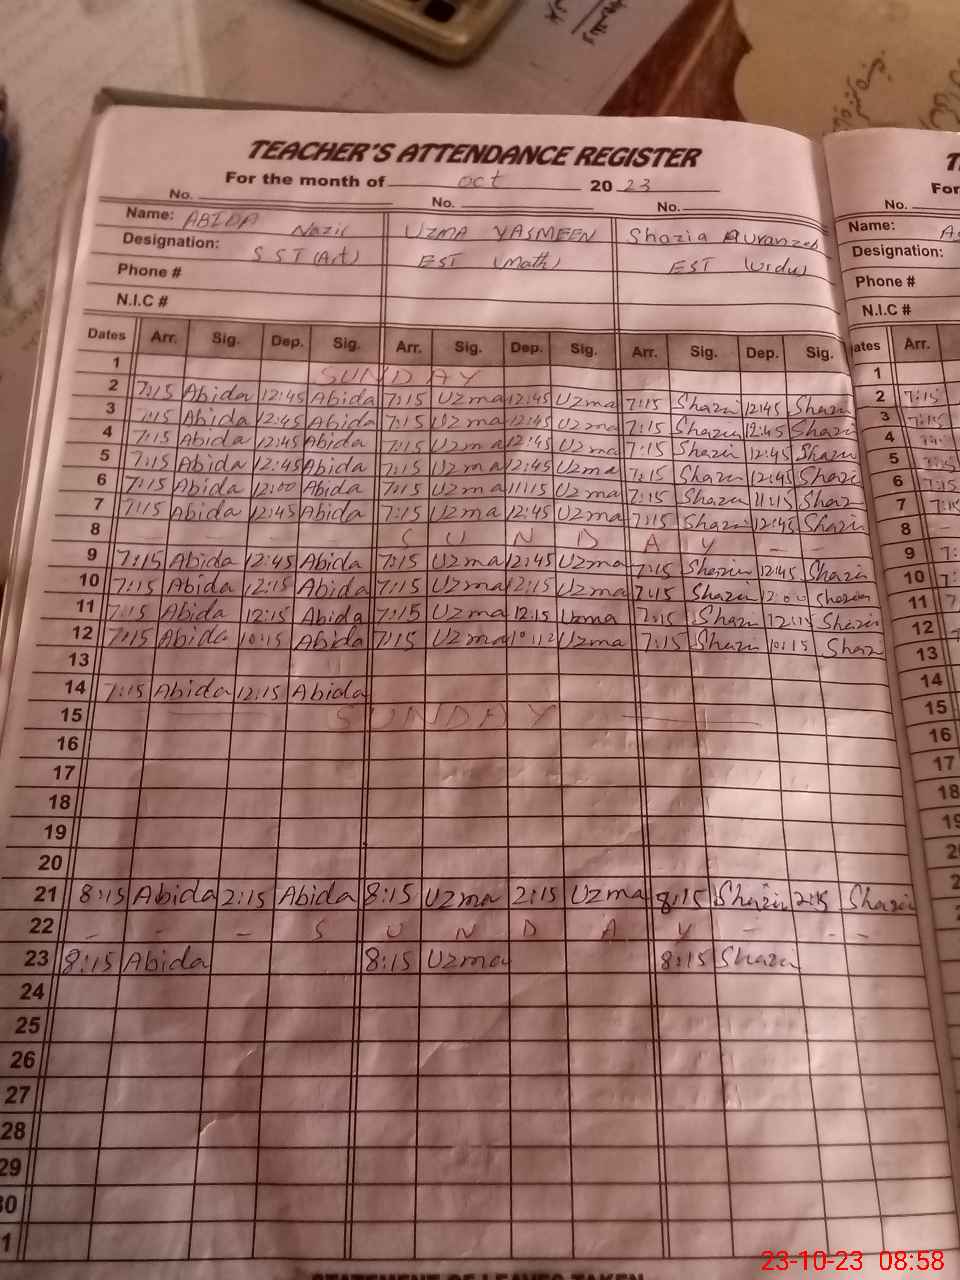 TEACHER'S ATTENDANCE REGISTER
For the month of oct 20 23
No. No. No. No.
Name: ABIDA Nazir UZMA YASMEEN Shazia Auranzeb Name:
Designation: SST (Art) EST (Math) EST (Urdu) Designation:
Phone # Phone #
N.I.C # N.I.C #
Dates Arr. Sig. Dep. Sig. Arr. Sig. Dep. Sig. Arr. Sig. Dep. Sig. Arr.
1 SUNDAY 1
2 7:15 Abida 12:45 Abida 7:15 Uzma 12:45 Uzma 7:15 Shazi 12:45 Shazi 2 7:15
3 7:15 Abida 12:45 Abida 7:15 Uzma 12:45 Uzma 7:15 Shazi 12:45 Shazi 3
4 7:15 Abida 12:45 Abida 7:15 Uzma 12:45 Uzma 7:15 Shazi 12:45 Shazi 4
5 7:15 Abida 12:45 Abida 7:15 Uzma 12:45 Uzma 7:15 Shazi 12:45 Shazi 5
6 7:15 Abida 12:00 Abida 7:15 Uzma 11:15 Uzma 7:15 Shazi 11:15 Shaz 6
7 7:15 Abida 12:45 Abida 7:15 Uzma 12:45 Uzma 7:15 Shazi 12:45 Shazi 7
8 - - - - S U N D A Y - - 8
9 7:15 Abida 12:45 Abida 7:15 Uzma 12:45 Uzma 7:15 Shazia 12:45 Shazi 9
10 7:15 Abida 12:15 Abida 7:15 Uzma 12:15 Uzma 7:15 Shazi 12:00 Shazia 10
11 7:15 Abida 12:15 Abida 7:15 Uzma 12:15 Uzma 7:15 Shazi 12:15 Shazi 11
12 7:15 Abida 10:15 Abida 7:15 Uzma 10:12 Uzma 7:15 Shazi 10:15 Shaz 12
13 13
14 7:15 Abida 12:15 Abida 14
15 SUNDAY 15
16 16
17 17
18 18
19
20
21 8:15 Abida 2:15 Abida 8:15 Uzma 2:15 Uzma 8:15 Shazia 2:15 Shazia
22 - - - S U N D A Y - - -
23 8:15 Abida 8:15 Uzma 8:15 Shazi
24
25
26
27
28
29
30
1
STATEMENT OF LEAVES TAKEN
23-10-23 08:58